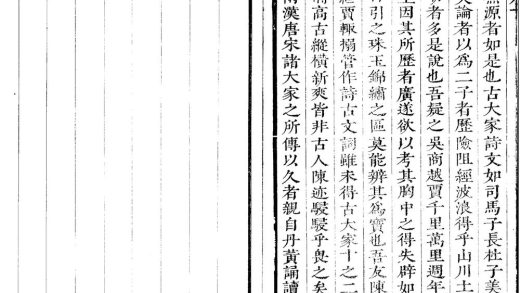 源者如是也古大家詩文如司馬子長杜子美
論者以為二子者歷險阻經波浪得乎山川土
者多是說也吾疑之吳商越賈千里萬里週年
因其所歷者廣遂欲以考其胸中之得失辟如
引之珠玉錦繡之區莫能辨其為寶也吾友陳
經賈輙搦管作詩古文詞雖未得古大家十之二
高古縱橫新爽皆非古人陳迹駸駸乎畏之矣
漢唐宋諸大家之所傳以久者親自丹黃誦讀